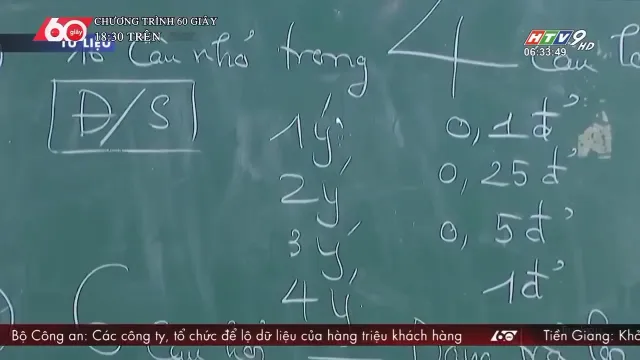 60 giây CHƯƠNG TRÌNH 60 GIÂY
18:30 TRÊN
HTV9 HD
06:33:49
TƯ LIỆU
câu nhỏ trong 4 câu
Đ/S
1 ý 0,1đ'
2 ý 0,25đ'
3 ý 0,5đ'
4 ý 1đ'
Bộ Công an: Các công ty, tổ chức để lộ dữ liệu của hàng triệu khách hàng 60 Tiền Giang: Khở